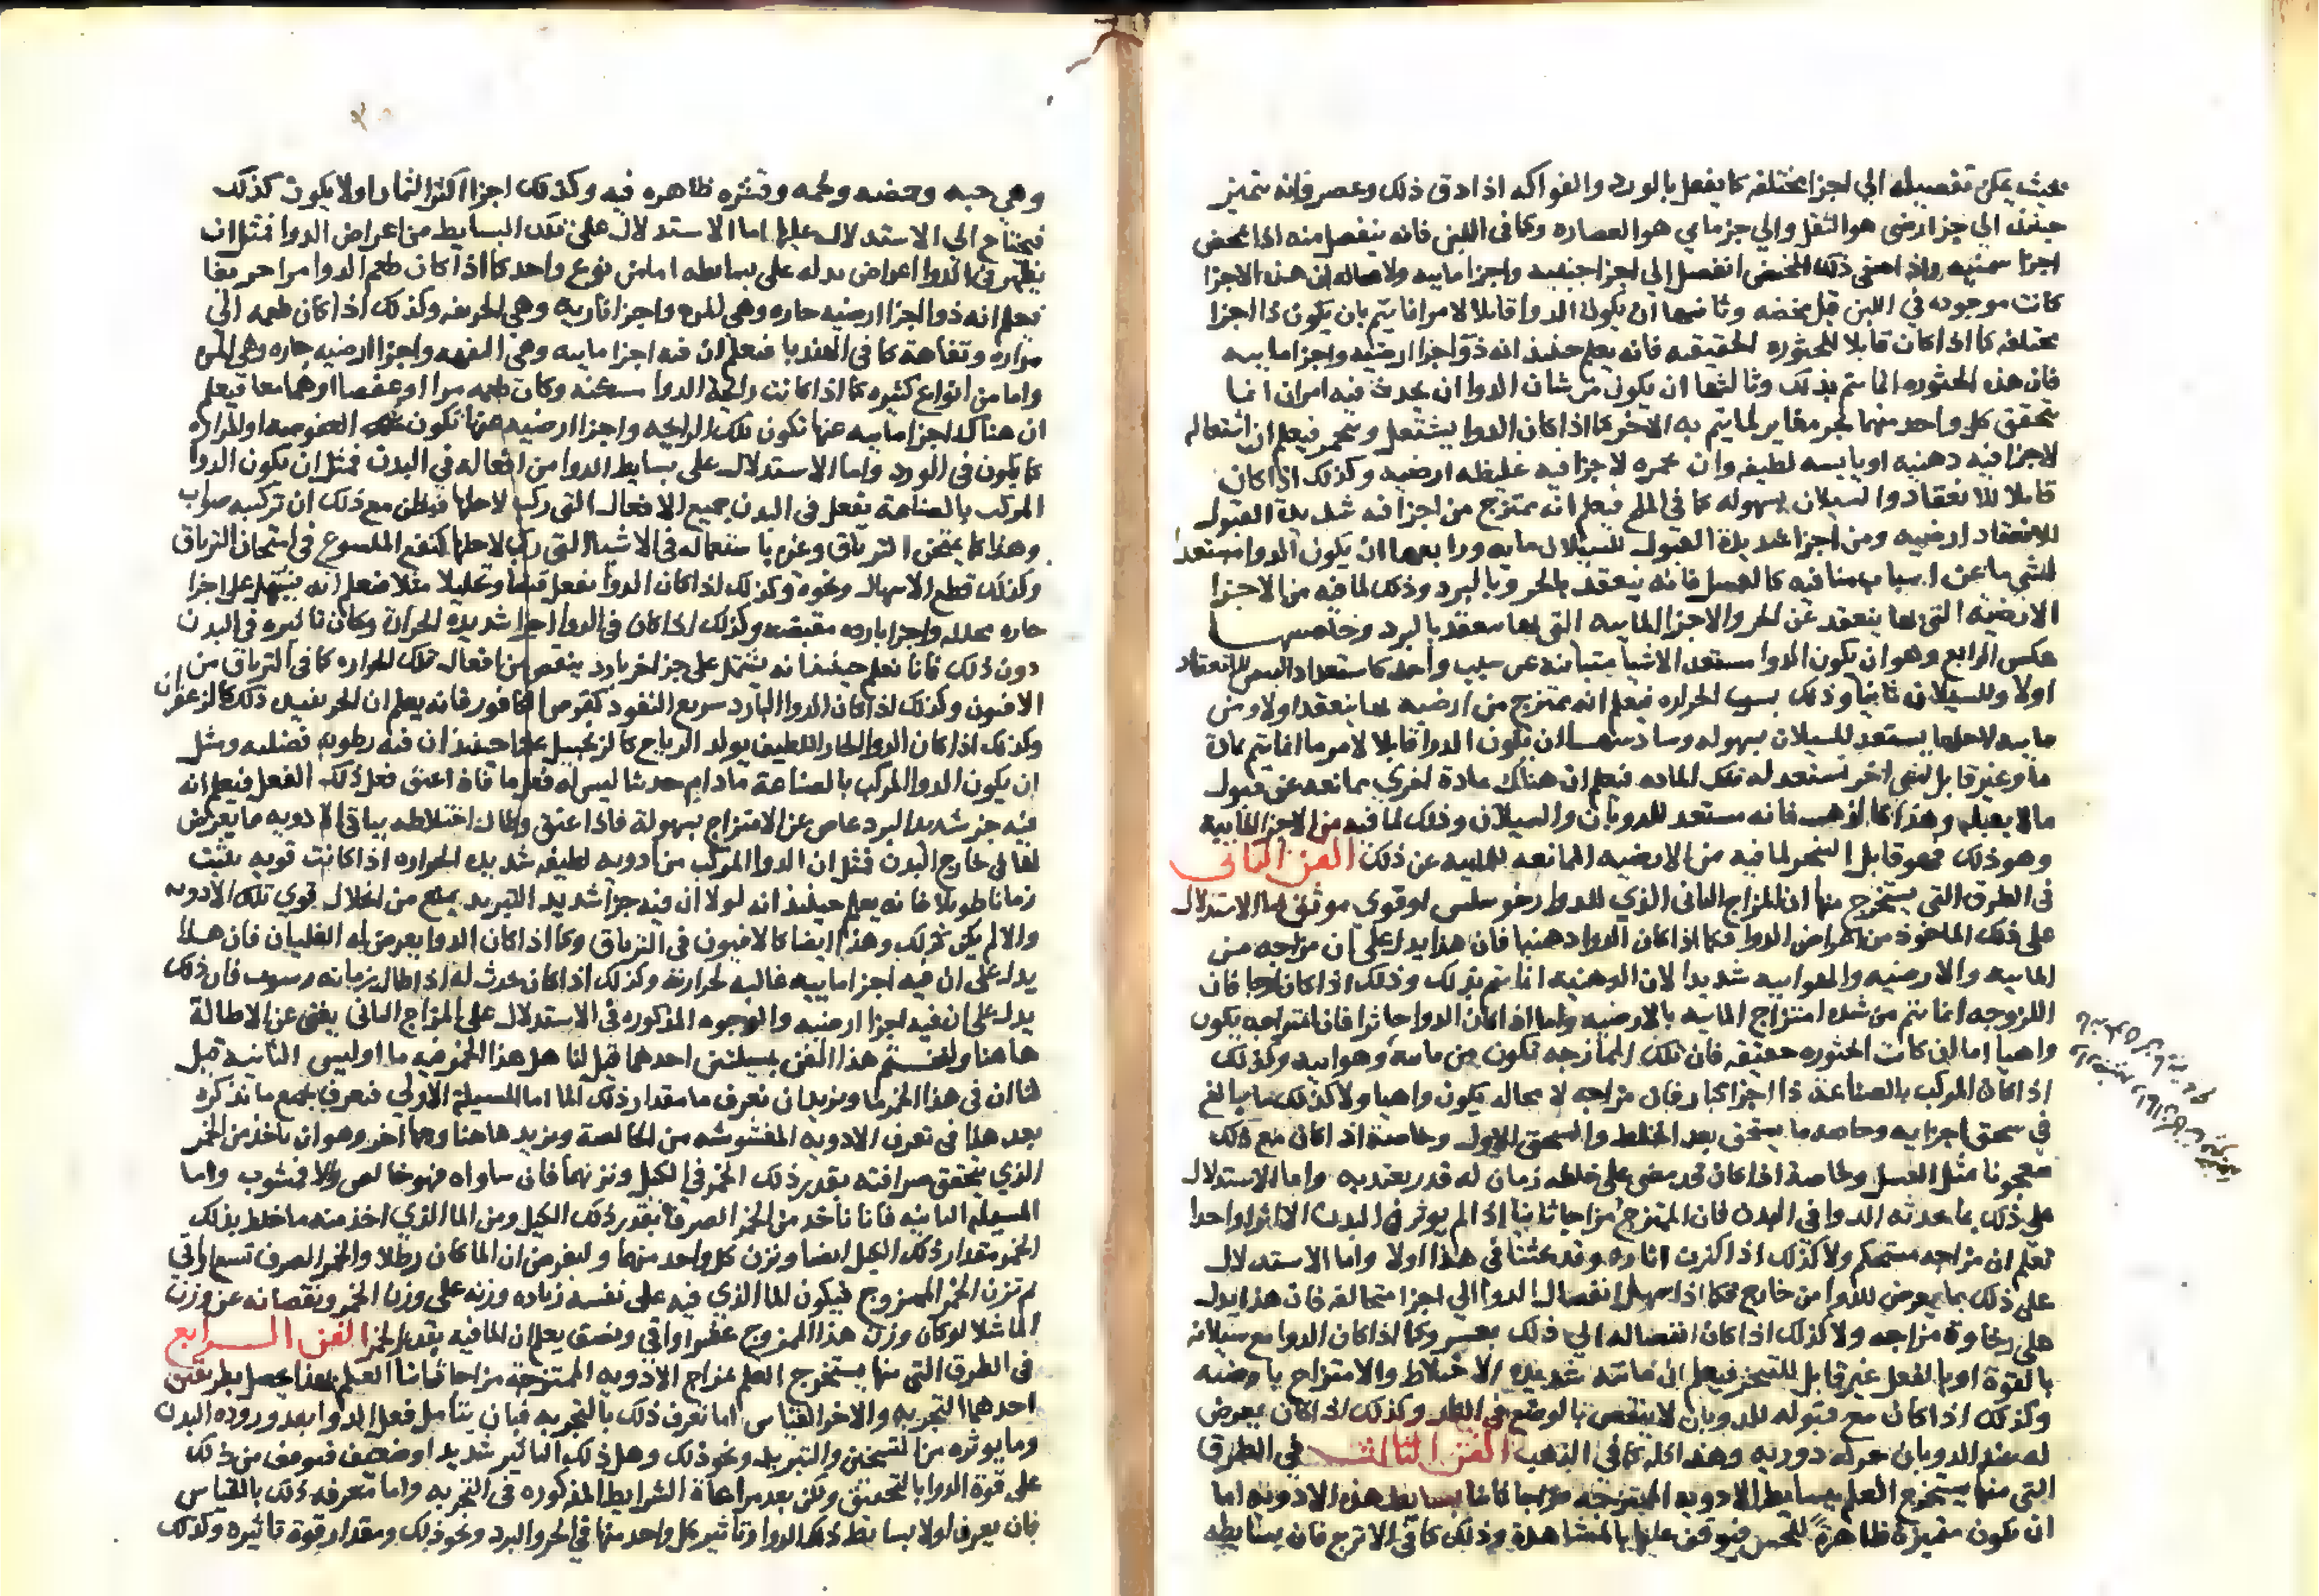 بحيث يمكن تفصيله الي اجزا مختلفه كما يفعل بالورد والفواكه اذا دق ذلك وعصر فانه يتميز
حينئذ الي جز ارضى هو الثفل والي جز ماي هو العصاره وكما في اللبن فانه ينفصل منه اذا مخض
اجزا سمنيه واذا ذلك المخيض انفصل الي اجزا جبنيه واجزا ماييه ولا محاله ان هذه الاجزا
كانت موجوده في اللبن قبل مخضه وثانيها ان يكون الدوا قابلا لامر انما يتم بان يكون ذا اجزا
مختلفه كما اذا كان قابلا للخثوره الحقيقيه فانه يعلم حينئذ انه ذو اجزا ارضيه واجزا ماييه
فان هذه الخثوره انما تتم بذلك وثالثها ان يكون من شان الدوا ان يحدث فيه امران انما
يتحقق كل واحد منهما بجز مغاير لما يتم به الاخر كما اذا كان الدوا يشتعل ويتجمر فيعلم ان اشتعاله
لاجزا فيه دهنيه او يابسه لطيفه وان تجمره لاجزا فيه غليظه ارضيه وكذلك اذا كان
قابلا للانعقاد والسيلان بسهوله كما في الملح فيعلم انه ممتزج من اجزا فيه شديدة القبول
للانعقاد ارضيه ومن اجزا شديدة القبول للسيلان ماييه ورابعها ان يكون الدوا مستعدا
لشي ما عن اسباب متنافيه كالعسل فانه ينعقد بالحر وبالبرد وذلك لما فيه من الاجزا
الارضيه التي بها ينعقد عن الحر والاجزا الماييه التي بها ينعقد بالبرد وخامسها
عكس الرابع وهو ان يكون الدوا مستعدا لاشيا متباينه عن سبب واحد كاستعداد للانعقاد
اولا وللسيلان ثانيا وذلك بسبب الحراره فيعلم انه ممتزج من ارضيه بها ينعقد اولا ومن
ماييه لاجلها يستعد للسيلان بسهوله وسادسها ان يكون الدوا قابلا لامر ما انما يتم بمادة
ما وغير قابل لشي اخر تستعد له تلك الماده فيعلم ان هناك مادة اخري ممانعه عن قبول
مالا يقبله وهذا كالذهب فانه مستعد للذوبان والسيلان وذلك لما فيه من الاجزا الماييه
وهو ذلك فهو قابل التبخر لما فيه من الارضيه الممانعه للماييه عن ذلك الفن الثاني
في الطرق التي يستخرج منها ان المزاج الثاني الذي للدوا رخو سلس او قوي موثق اما الاستدلال
على ذلك الماخوذ من اعراض الدوا فكما اذا كان الدوا دهنيا فان هذا يدل علي ان مزاجه من
الماييه والارضيه والهواييه شديدا لان الدهنيه انما تتم بذلك وكذلك اذا كان لزجا فان
اللزوجه انما تتم من شدة امتزاج الماييه بالارضيه واما اذا كان الدوا خاثرا فان امتزاجه يكون
واهيا اما ان كانت الخثوره حقيقيه فان تلك الممازجه تكون من ماييه وهواييه وكذلك
اذا كان المركب بالصناعة ذا اجزا كبار فان مزاجه لا محاله يكون واهيا ولا كذلك ما يبالغ
في سحق اجزايه وخاصه ما يسحق بعد الخلط والسحق الاول وخاصة اذا كان مع ذلك
معجونا مثل العسل وخاصة اذا كان قد مضى على خلطه زمان له قدر يعتد به واما الاستدلال
على ذلك بما يحدثه الدوا في البدن فان الممتزج مزاجا ثانيا اذا لم يوثر في البدن الا اثرا واحدا
نعلم ان مزاجه مستحكم ولا كذلك اذا كثرت اثاره وقد بحثنا في هذا اولا واما الاستدلال
على ذلك بما يعرض للدوا من خارج فكما اذا سهل انفصال الدوا الي اجزا متخالفه فان هذا يدل
على رخاوة مزاجه ولا كذلك اذا كان انفصاله الي ذلك بعسر وكما اذا كان الدوا مع سيلانه
بالقوة او بالفعل غير قابل للتبخر فيعلم ان ماييته شديده الاختلاط والامتزاج بارضيته
وكذلك اذا كان مع قبوله للذوبان لا ينقص بالوضع في النار وكذلك اذا كان يعرض
له عند الذوبان حركه دوريه وهذا كله كما في الذهب الفن الثالث في الطرق
التي منها يستخرج العلم ببسايط الادويه الممتزجه مزاجا ثانيا بسايط هذه الادويه اما
ان تكون متميزة ظاهرة للحس فيوقف عليها بالمشاهدة وذلك كما في الاترج فان بسايطه
وهي حبه وحمضه ولحمه وقشره ظاهره فيه وكذلك اجزا اكثر الثمار او لا يكون كذلك
فيحتاج الي الاستدلال عليها اما الاستدلال على تلك البسايط من اعراض الدوا فمثل ان
يظهر في الدوا اعراض يدله على بسايطه اما من نوع واحد كما اذا كان طعم الدوا مرا حريفا
فيعلم انه ذو اجزا ارضيه حاره وهي المره واجزا ناريه وهي الحريفه وكذلك اذا كان طعمه الى
مراره وتفاهة كما في الهندبا فيعلم ان فيه اجزا ماييه وهي التفهه واجزا ارضيه حاره وهي المره
واما من انواع كثيره كما اذا كانت رايحة الدوا وكان طعمه مرا او عفصا او هما معا فيعلم
ان هناك اجزا ماييه عنها تكون تلك الرايحه واجزا ارضيه عنها تكون العفوصه او المراره
كما يكون في الورد واما الاستدلال على بسايط الدوا من افعاله في البدن فمثل ان يكون الدوا
المركب بالصناعة يفعل في البدن جميع الافعال التي ركب لاجلها فيظن مع ذلك ان تركيبه صواب
وهذا كما يمتحن الترياق وغيره باستعماله في الاشيا التي ركب لاجلها كنفع الملسوع في امتحان الترياق
وكذلك قطع الاسهال ونحوه وكذلك اذا كان الدوا يفعل قبضا وتحليلا مثلا فيعلم انه يشتمل على اجزا
حاره محلله واجزا بارده مقبضه وكذلك اذا كان في الدوا اجزا شديده الحرارة وكان تاثيره في البدن
دون ذلك فانا نعلم حينئذ انه يشتمل على جز اخر بارد ينقص من افعال تلك الحراره كما في الترياق من
الافيون وكذلك اذا كان الدوا البارد سريع النفوذ كقرص الكافور فانه يعلم ان الحر يفيده ذلك كالزعفران
وكذلك اذا كان الدوا الحار اللطيف يولد الرياح كالزنجبيل علم حينئذ ان فيه رطوبه فضليه ومثل
ان يكون الدوا المركب بالصناعة ما دام حديثا ليس له فعل ما فاذا عتق فعل ذلك الفعل فيعلم انه
فيه جز شديد البرد عاص عن الامتزاج بسهولة فاذا عتق وطال اختلاطه بباقي الادويه ما يعرض
لها في خارج البدن فمثل ان الدوا المركب من ادويه لطيفه شديده الحراره اذا كانت قويه يثبت
زمانا طويلا فانه يعلم حينئذ انه لولا ان فيه جزا شديد التبريد يمنع من انحلال قوي تلك الادويه
والا لم يكن كذلك وهذا ايضا كالافيون في الترياق وكما اذا كان الدوا يعرض له الغليان فان هذا
يدل على ان فيه اجزا ماييه غالبه لحرارته وكذلك اذا كان يحدث له اذا طال زمانه رسوب فان ذلك
يدل على ان فيه اجزا ارضيه والوجوه المذكوره في الاستدلال على المزاج الثاني يغنى عن الاطالة
هاهنا ولنختم هذا الفن بمسيلتين احدهما قيل لنا هل هذا الخمر فيه ما او ليس الثانيه قيل
لنا ان في هذا الخمر ما ونريد ان نعرف ما مقدار ذلك الما اما المسيله الاولي فنعرف بجميع ما نذكره
بعد هذا في تعرف الادويه المغشوشه من الخالصة ونزيد هاهنا وجها اخر وهو ان ناخذ من الخمر
الذي يتحقق صرافته بقدر ذلك الخمر في الكيل ونزنهما فان ساواه فهو خالص والا فمشوب واما
المسيله الثانيه فانا ناخذ من الخمر الصرف بقدر ذلك الكيل ومن الما الذي اخذ منه ما خلط بذلك
الخمر مقدار ذلك الكيل ايضا ونزن كل واحد منهما وليفرض ان الما كان رطلا والخمر الصرف تسع اواقي
ثم نزن الخمر الممزوج فيكون الما الذي فيه على نسبة زياده وزنه على وزن الخمر ونقصانه عن وزن
الما مثلا لو كان وزن هذا الممزوج عشر اواقي ونصف يعلم ان الما فيه بقدر الخمر الفن الرابع
في الطرق التي منها يستخرج العلم بمزاج الادويه الممتزجة مزاجا ثانيا العلم بهذا يحصل بطريقين
احدهما التجربه والاخر القياس اما تعرف ذلك بالتجربه فبان يتامل فعل الدوا بعد وروده البدن
وما يوثره من التسخين والتبريد ونحو ذلك وهل ذلك التاثير شديد او ضعيف فيوقف من ذلك
على قوة الدوا بالتحقيق ولكن بعد مراعاة الشرايط المذكوره في التجربه واما معرفه ذلك بالقياس
فان يعرف اولا بسايط ذلك الدوا وتاثير كل واحد منها في الحر والبرد ونحو ذلك ومقدار قوة تاثيره وكذلك